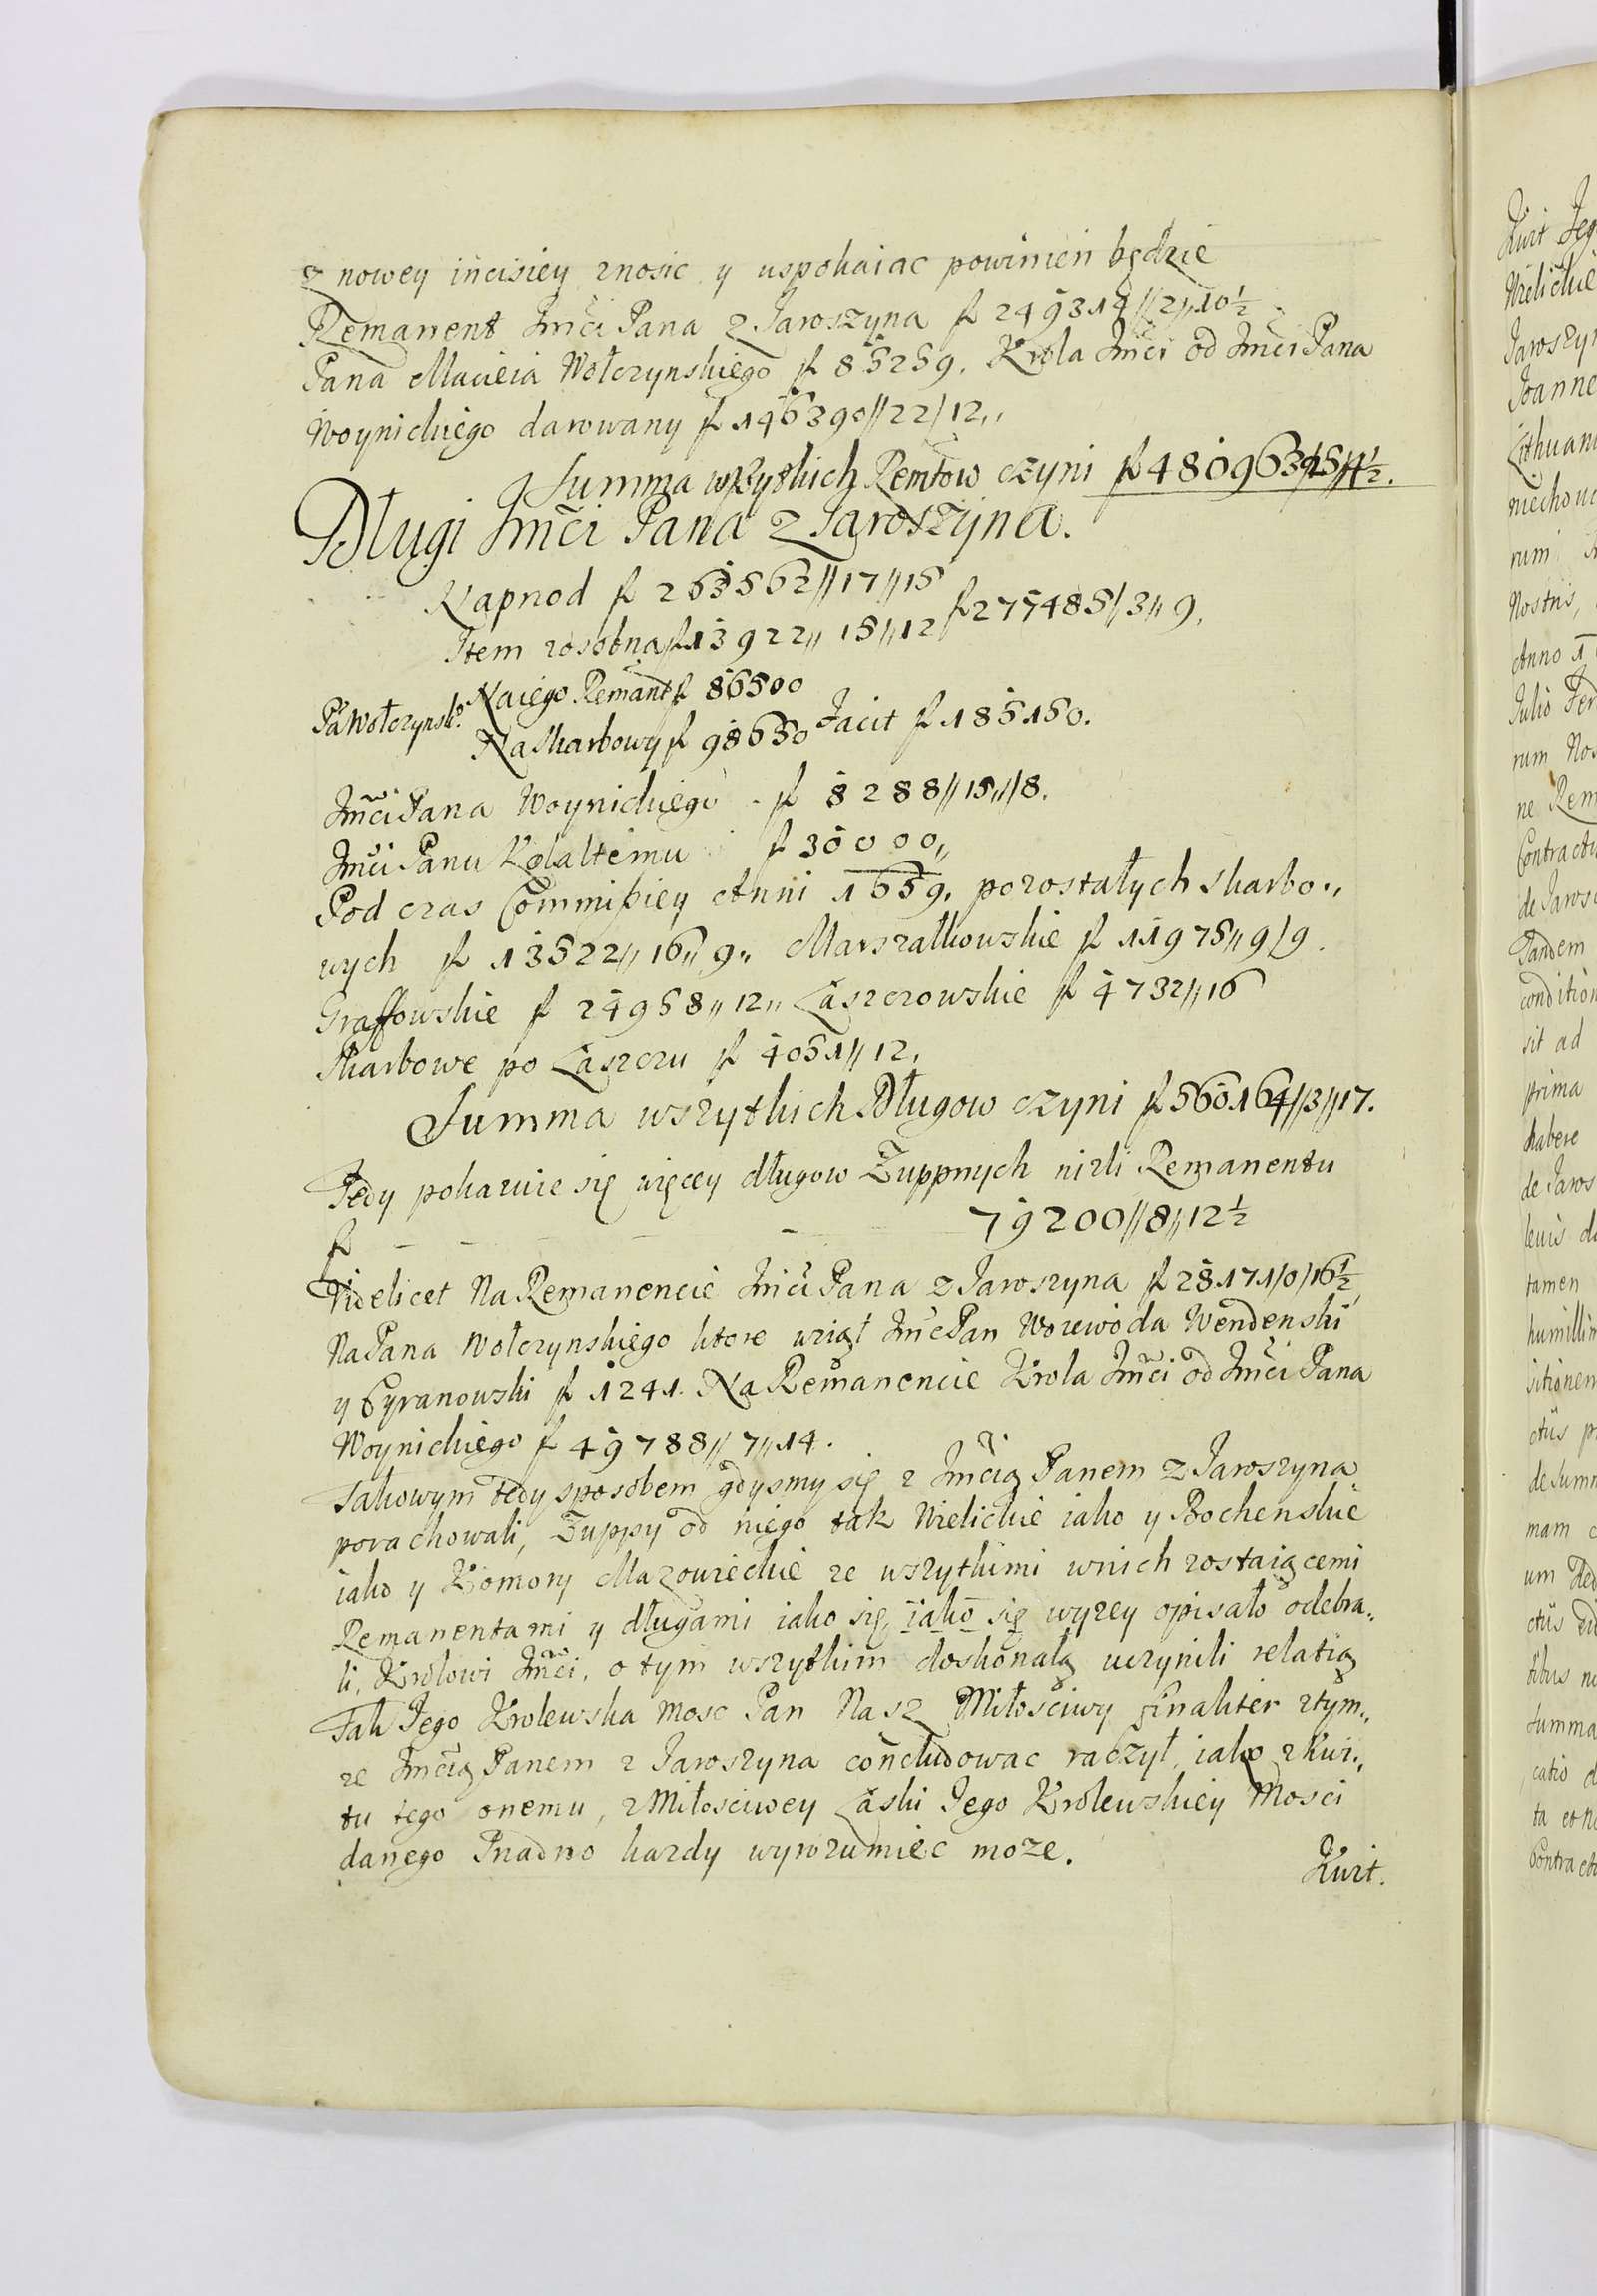 z nowey incisiey znosic y uspokaiac powinien będzie
Remanent Jmći Pana z Jaroszyna f 249314//2//10½
Pana Macieia Wołczynskiego f 85259. Krola Jmći od Jmći Pana
Woynickiego darowany f 146390//22/12,,
Summa wszytkich Remtow czyni f 480963//25//4½.
Długi Jmći Pana z Jaroszyna.
Naprzod f 263562//17//15
Item zosobna f 13922,, 15,,12 f 277485/3,,9.
Pa Wołczynsko. Naiego Remant f 86500
Na Skarbowy f 98650 Facit f 185150.
Jmći Pana Woynickiego f 8288//15,,/8.
Jmći Panu Kolaltemu f 30000,,
Pod czas Commissiey Anni 1659. pozostałych skarbo,,
wych f 13522,, 16,, 9,, Marszałkowskie f 11975,, 9/9.
Graffowskie f 24958,, 12,, Łaszczowskie f 4732,,16
Skarbowe po Łaszczu f 4051,, 12.
Summa wszytkich Długow czyni f 560164//3//17.
Tedy pokazuie się więcey długow Zuppnych nizli Remanentu
f - - - - - 79200//8,,12½
Videlicet Na Remanencie Jmći Pana z Jaroszyna f 28171/0/16½
Na Pana Wołczynskiego ktore wziął Jmć Pan Woiewoda Wendenski
y Cyranowski f 1241. Na Remanencie Krola Jmći od Jmći Pana
Woynickiego f 49788,, 7,,14.
Takowym tedy sposobem gdysmy się z Jmćią Panem z Jaroszyna
porachowali, Zuppy od niego tak Wielickie iako y Bochenskie
iako y Komory Mazowieckie ze wszytkimi wnich zostaiącemi
Remanentami y długami iako się, iako się wyzey opisało odebra,,
li, Krolowi Jmći, o tym wszytkim doskonałą uczynili relatią
Tak Jego Krolewska Mosc Pan Nasz Miłościwy finaliter ztym,,
ze Jmćią Panem z Jaroszyna concludowac raczył, iako z kwi,,
tu tego onemu, z Miłosciwey Łaski Jego Krolewskiey Mosci
danego Snadno kazdy wyrozumiec moze.
Kwit.